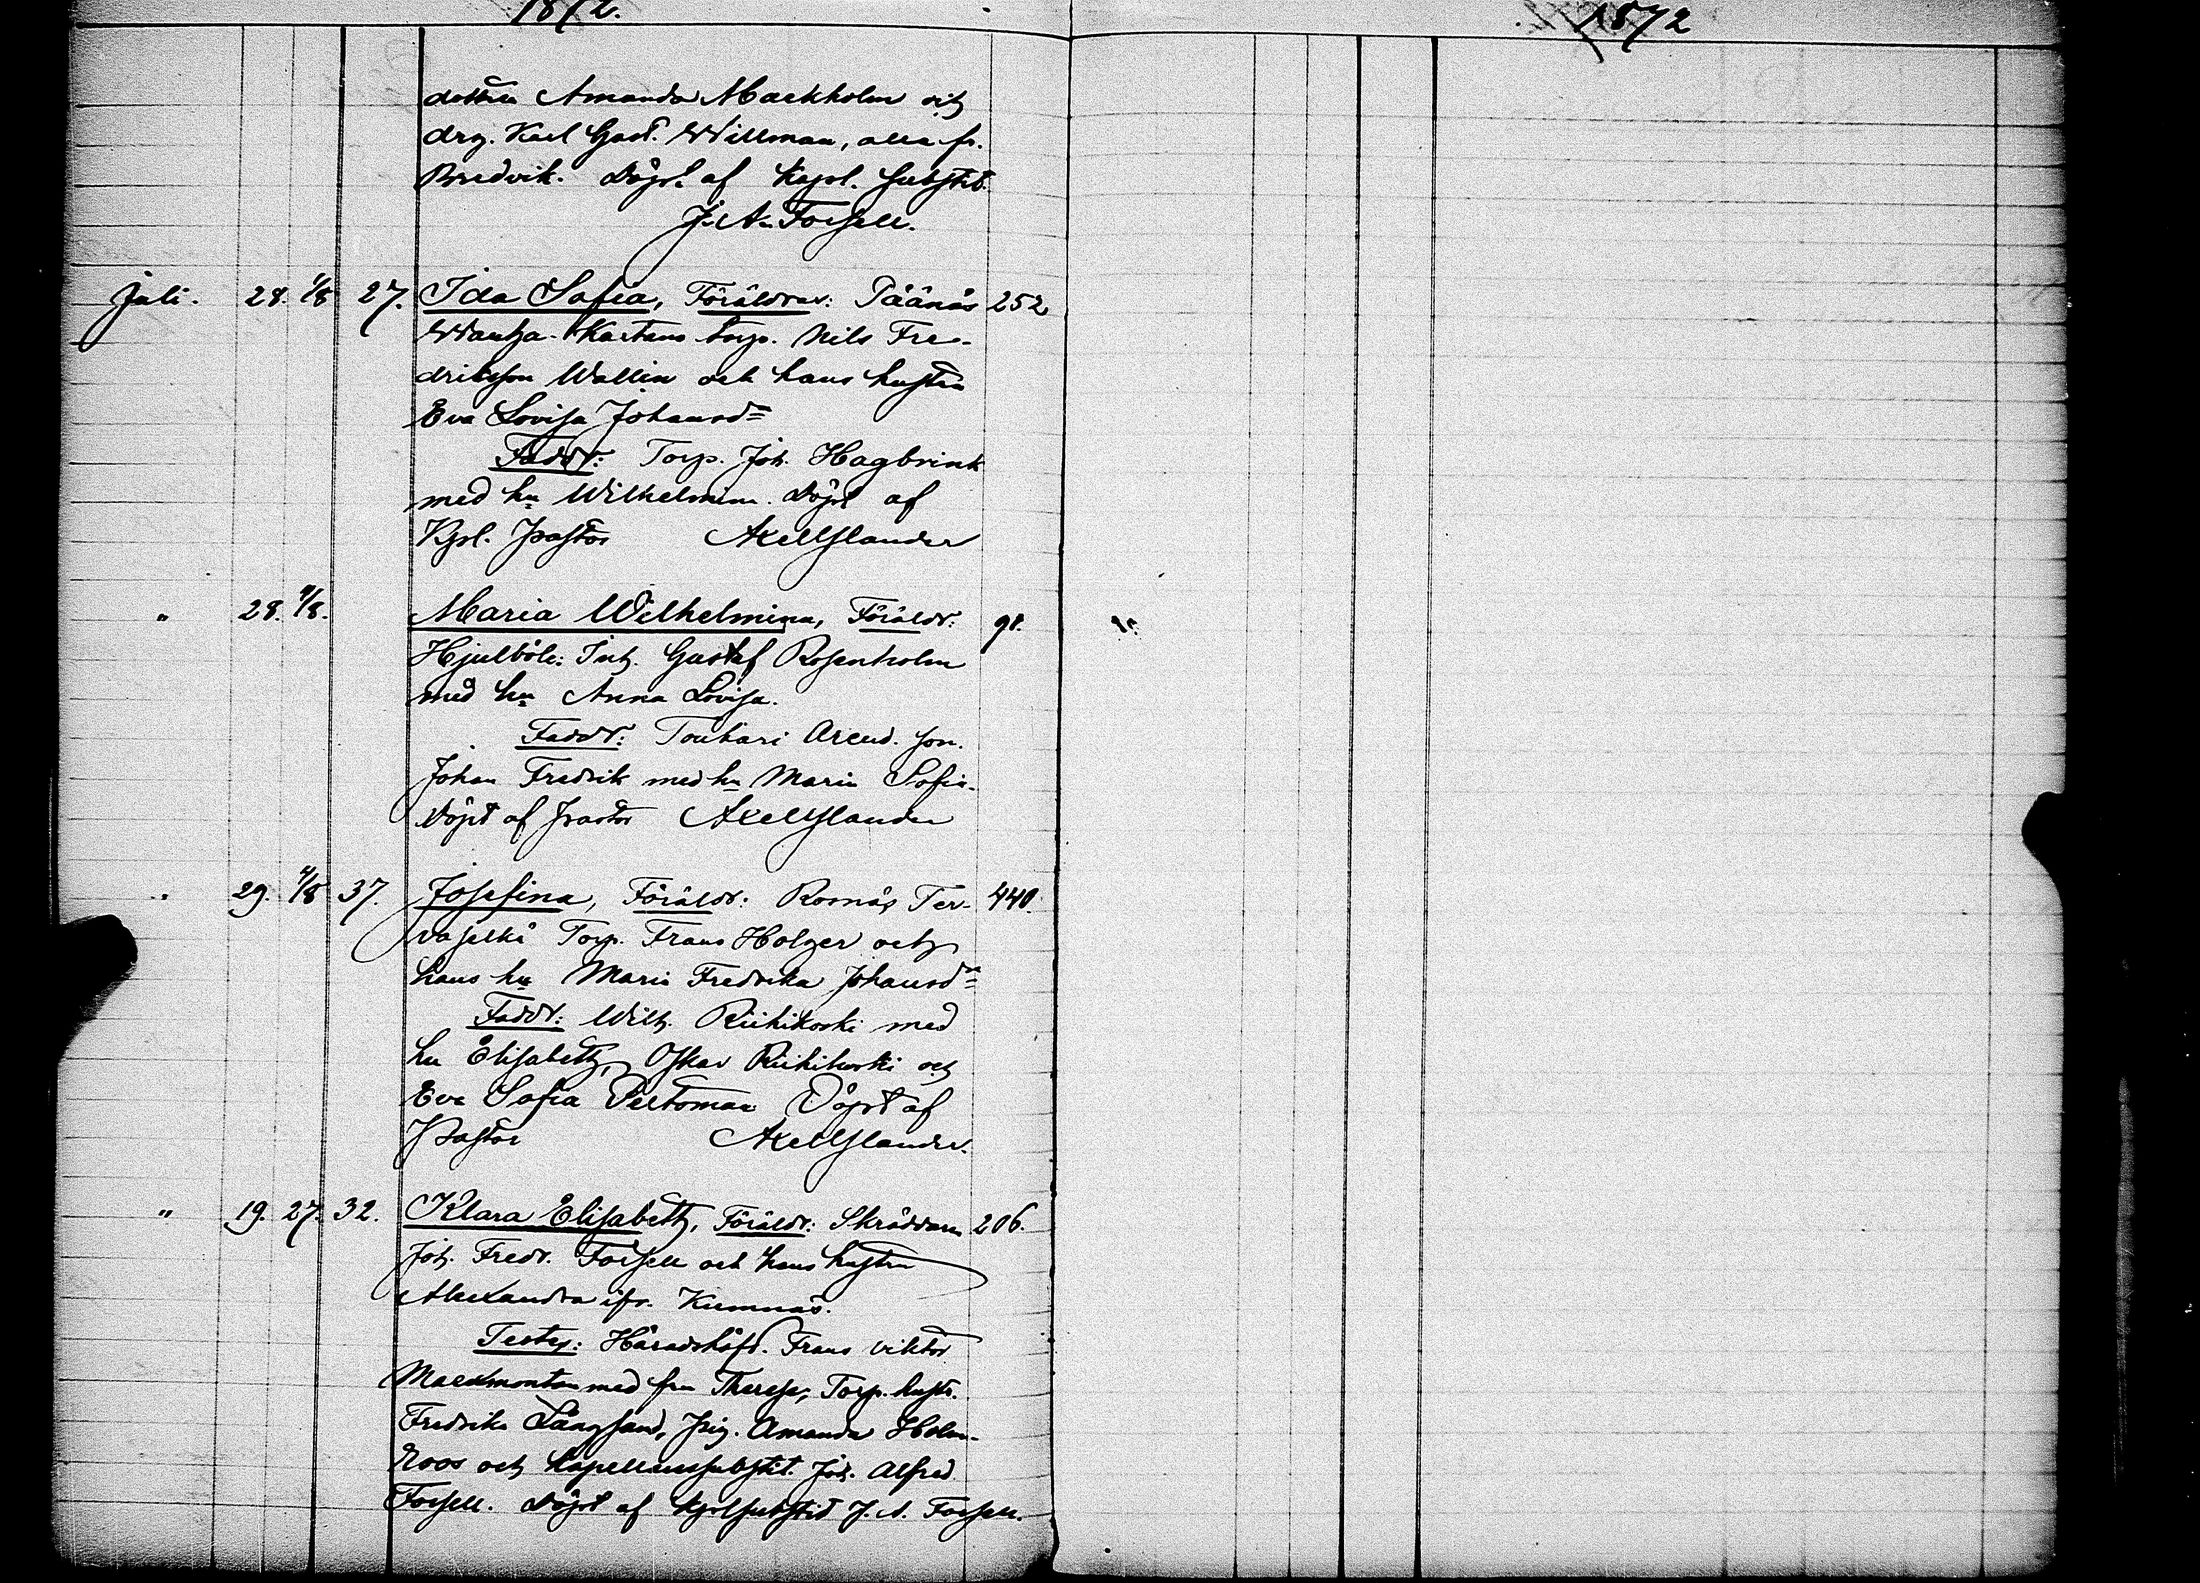 1872.
1872
dottren Amanda Mackholm och
drg. Karl Gust. Willman, alla fr.
Bredvik. Döpt af Kapl. substit.
J. A. Forsell.
Juli. 28. 4/8 27. Ida Sofia, Föräldrar: Päänäs 252
Wanha-Kartano torp. Nils Fre-
driksson Wallin och hans hustru
Eva Lovisa Johansdr
Faddr: Torp. Joh. Hagbrink
med hu Wilhelmina. Döpt af
Kpl. Pastor Axel Islander
" 28. 4/8. Maria Wilhelmina, Föräldr: 91.
Hjulböle: Inh. Gustaf Rosenholm
med hu Anna Lovisa.
Faddr: Toukari Arend. son.
Johan Fredrik med hu Maria Sofia.
Döpt af Pastor Axel Islander
" 29. 4/8 37. Josefina, Föräldr: Ter- 440.
vaselkä Torp. Frans Holger och
hans hu Maria Fredrika Johansdr
Faddr: Wilh. Riihikoski med
hu Elisabeth, Oskar Riihikoski och
Eva Sofia Peltoman Döpt af
Pastor Axel Islander.
" 19. 27. 32. Klara Elisabeth, Föräldr: Skräddaren 206.
Joh. Fredr. Forsell och hans hustru
Alexandra ifr. Kumnäs.
Testes: Häradshöfd. Frans Viktor
Maexmontan med fru Therese, Torp. hustr.
Fredrika Långsand, Pig. Amanda Holm-
Roos och Kapellanssubstit. Joh. Alfred
Forsell. Döpt af Kplsubstit J. A. Forsell.